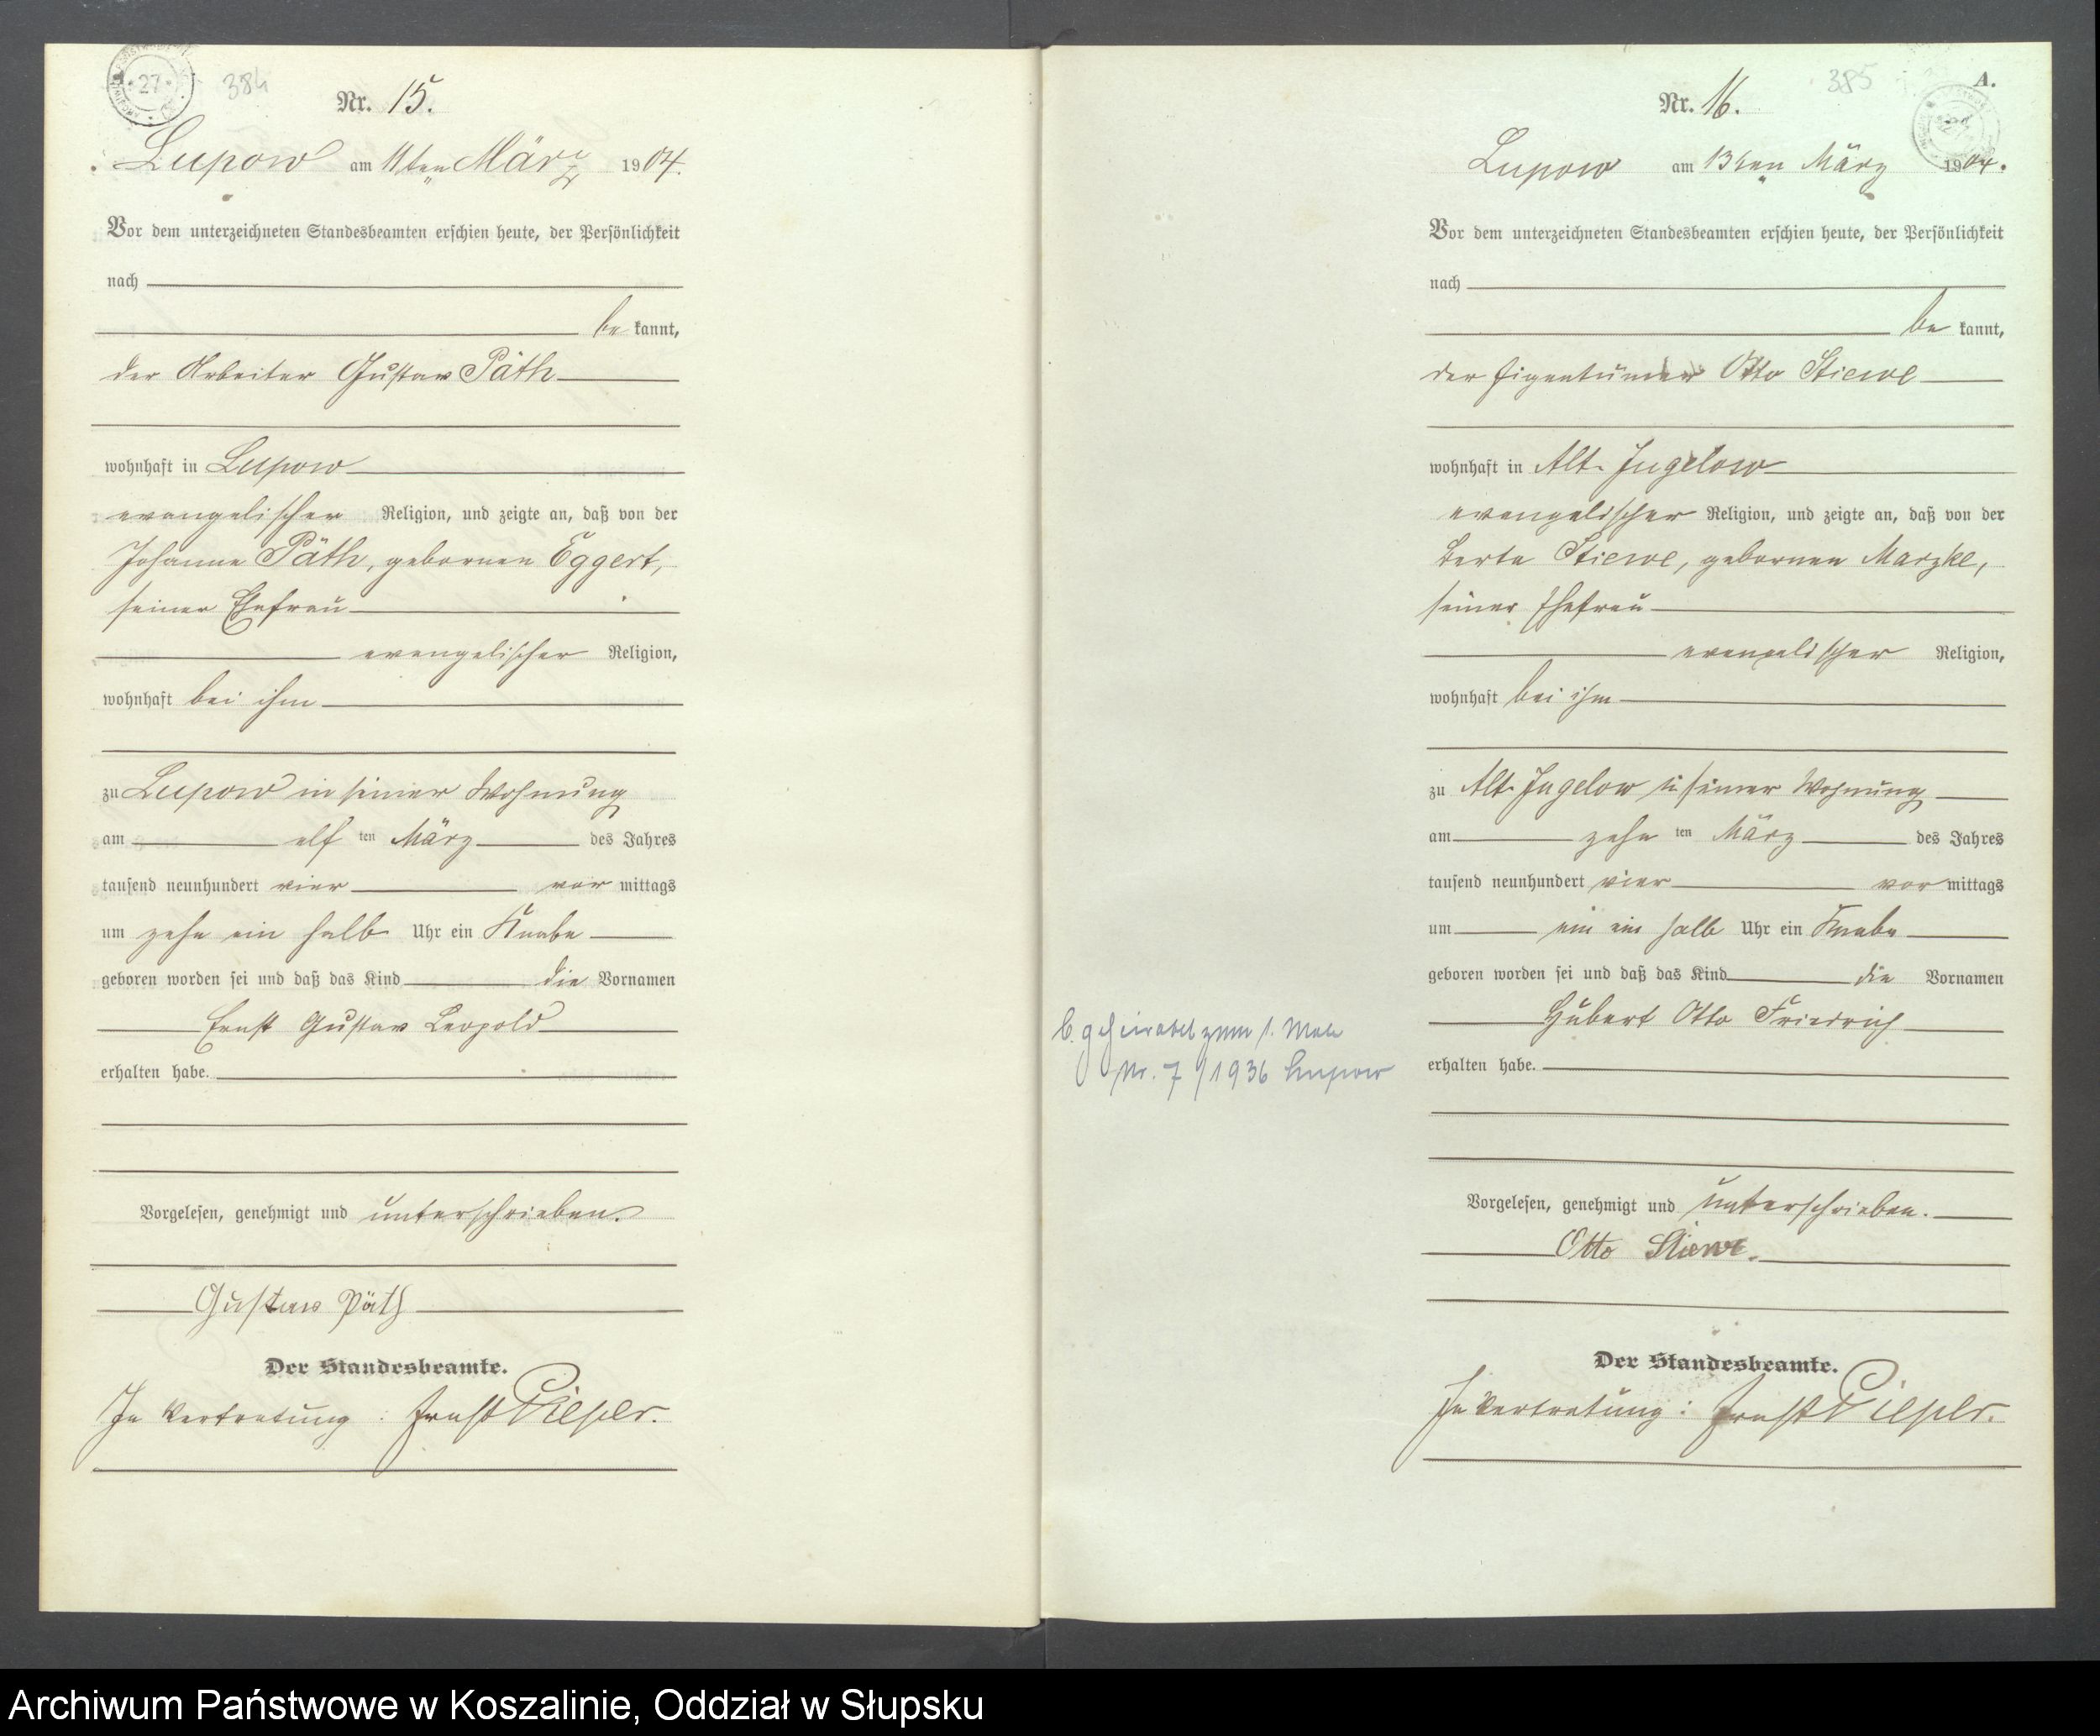 384
27
Nr. 15.
Lupow am 11ten März 1904.
Vor dem unterzeichneten Standesbeamten erschien heute, der Persönlichkeit
nach
be kannt,
der Arbeiter Gustav Päth
wohnhaft in Lupow
evangelischer Religion, und zeigte an, daß von der
Johanne Päth, geborenen Eggert,
seiner Ehefrau
evangelischer Religion,
wohnhaft bei ihm
zu Lupow in seiner Wohnung
am elf ten März des Jahres
tausend neunhundert vier vor mittags
um zehn ein halb Uhr ein Knabe
geboren worden sei und daß das Kind die Vornamen
Ernst Gustav Leopold
erhalten habe.
Vorgelesen, genehmigt und unterschrieben.
Gustav Päth
Der Standesbeamte.
In Vertretung: Ernst Pieper.
385
A.
Nr. 16.
Lupow am 13ten März 1904.
Vor dem unterzeichneten Standesbeamten erschien heute, der Persönlichkeit
nach
be kannt,
der Eigentümer Otto Stiewe
wohnhaft in Alt-Jugelow
evangelischer Religion, und zeigte an, daß von der
Berta Stiewe, geborenen Marzke,
seiner Ehefrau
evangelischer Religion,
wohnhaft bei ihm
zu Alt-Jugelow in seiner Wohnung
am zehn ten März des Jahres
tausend neunhundert vier vor mittags
um ein ein halb Uhr ein Knabe
geboren worden sei und daß das Kind die Vornamen
Hubert Otto Friedrich
erhalten habe.
geheiratet zum 1. Male
Nr. 7/1936 Lupow
Vorgelesen, genehmigt und unterschrieben.
Otto Stiewe.
Der Standesbeamte.
In Vertretung: Ernst Pieper.
Archiwum Państwowe w Koszalinie, Oddział w Słupsku